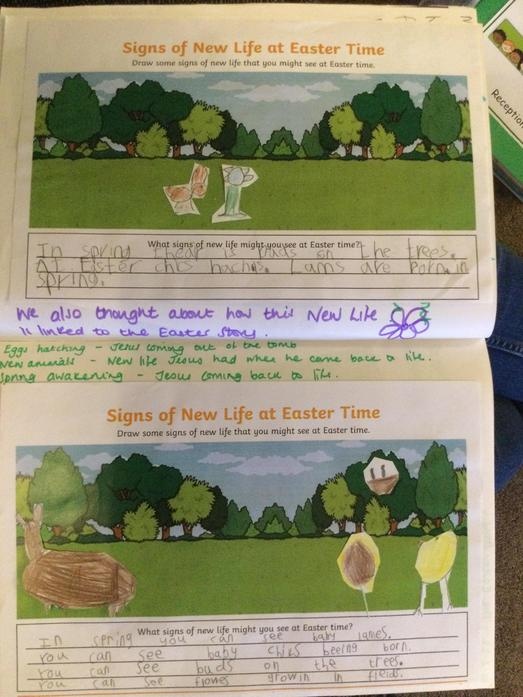 Reception
Signs of New Life at Easter Time
Draw some signs of new life that you might see at Easter time.
What signs of new life might you see at Easter time?
In spring thear is buds on the trees.
At Easter chics hachs. Lams are born in
spring.
We also thought about how this New Life
is linked to the Easter Story.
Eggs hatching - Jesus coming out of the tomb
New animals - New life Jesus had when he came back to life.
Spring awakening - Jesus coming back to life.
Signs of New Life at Easter Time
Draw some signs of new life that you might see at Easter time.
What signs of new life might you see at Easter time?
In spring you can see baby lames.
You can see baby chics beeing born.
You can see buds on the trees.
You can see flowes growin in fields.